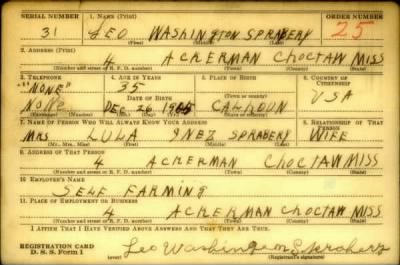 SERIAL NUMBER 1. NAME (Print) ORDER NUMBER
31 GEO WASHINGTON SPRABERY 25
(First) (Middle) (Last)
2. ADDRESS (Print)
4 ACKERMAN CHOCTAW MISS
(Number and street or R. F. D. number) (Town) (County) (State)
3. TELEPHONE 4. AGE IN YEARS 5. PLACE OF BIRTH 6. COUNTRY OF CITIZENSHIP
"NONE" 35
DATE OF BIRTH
NONE DEC 26 1905 CALHOUN USA
(Exchange) (Number) (Mo.) (Day) (Yr.) (Town or county) (State or country)
7. NAME OF PERSON WHO WILL ALWAYS KNOW YOUR ADDRESS 8. RELATIONSHIP OF THAT PERSON
MRS LULA INEZ SPRABERY WIFE
(Mr., Mrs., Miss) (First) (Middle) (Last)
9. ADDRESS OF THAT PERSON
4 ACKERMAN CHOCTAW MISS
(Number and street or R. F. D. number) (Town) (County) (State)
10. EMPLOYER'S NAME
SELF FARMING
11. PLACE OF EMPLOYMENT OR BUSINESS
4 ACKERMAN CHOCTAW MISS
(Number and street or R. F. D. number) (Town) (County) (State)
I AFFIRM THAT I HAVE VERIFIED ABOVE ANSWERS AND THAT THEY ARE TRUE.
REGISTRATION CARD
D. S. S. Form 1 Geo Washington Sprabery
(over) (Registrant's signature)